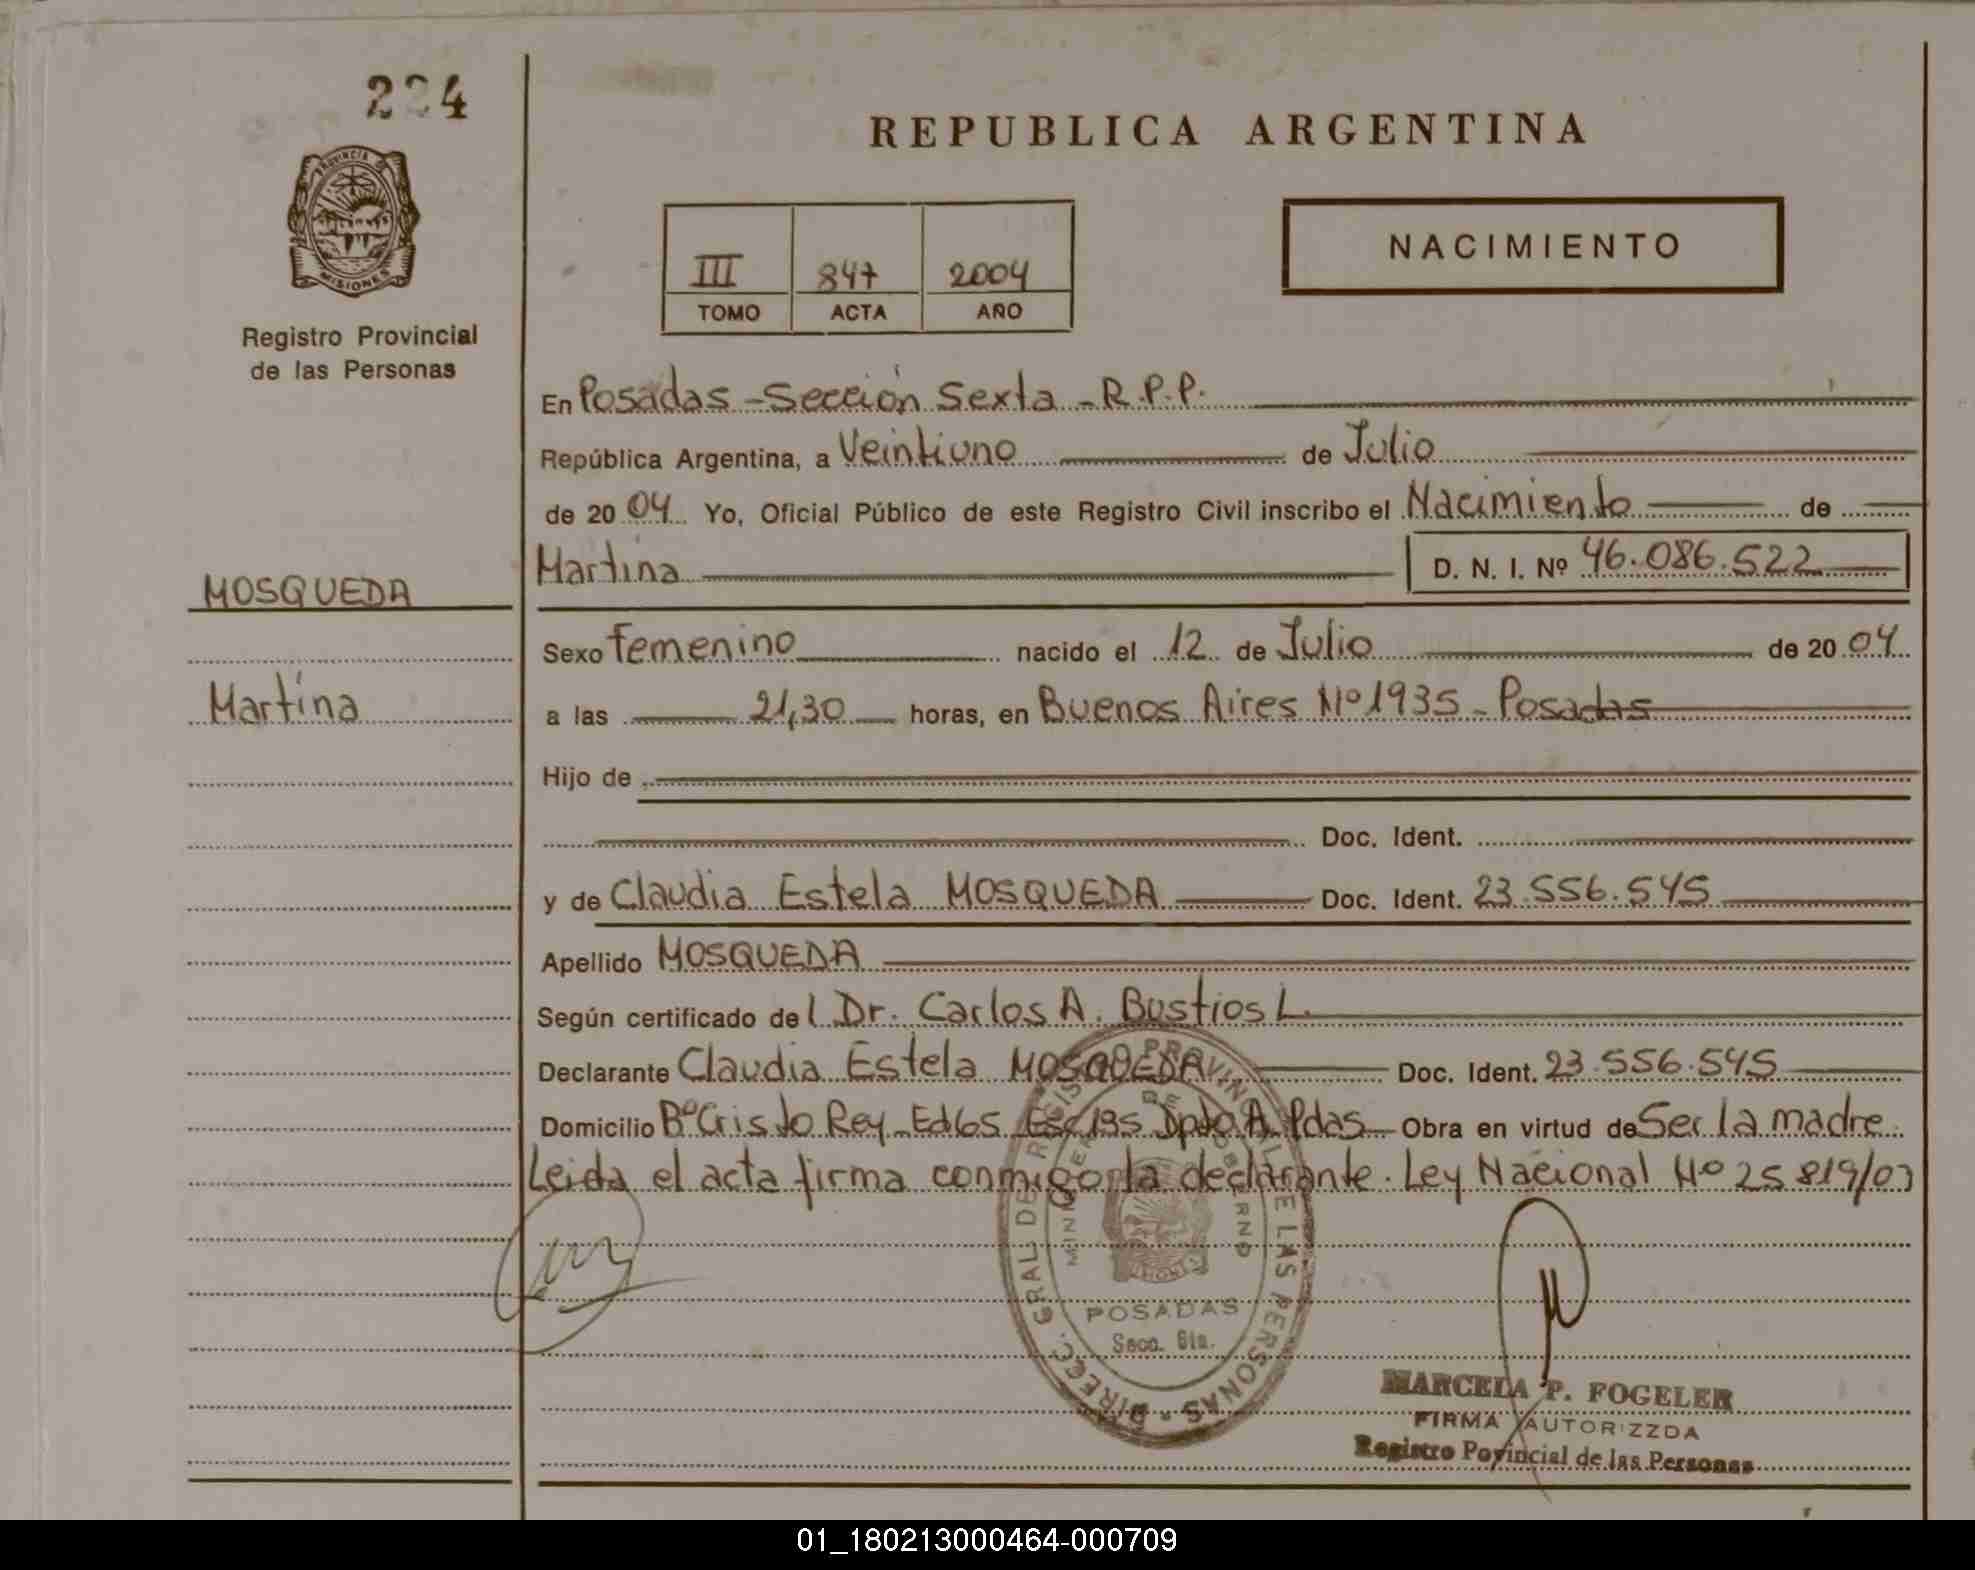 224
PROVINCIA DE
MISIONES
Registro Provincial
de las Personas
MOSQUEDA
Martina
REPUBLICA ARGENTINA
III 847 2004
TOMO ACTA AÑO
NACIMIENTO
En Posadas - Sección Sexta - R.P.P.
República Argentina, a Veintiuno de Julio
de 20 04 Yo, Oficial Público de este Registro Civil inscribo el Nacimiento de
Martina D. N. I. Nº 46.086.522
Sexo Femenino nacido el 12 de Julio de 20 04
a las 21,30 horas, en Buenos Aires Nº 1935 - Posadas
Hijo de
Doc. Ident.
y de Claudia Estela MOSQUEDA Doc. Ident. 23.556.545
Apellido MOSQUEDA
Según certificado del Dr. Carlos A. Bustios L.
Declarante Claudia Estela MOSQUEDA Doc. Ident. 23.556.545
Domicilio Bº Cristo Rey - Ed 65 Esc 195 Dpto A Pdas - Obra en virtud de Ser la madre
Leida el acta firma conmigo la declarante. Ley Nacional Nº 25 819/03
DIRECC. GRAL. DE REGISTRO PROVINCIAL DE LAS PERSONAS
MINISTERIO DE GOBIERNO
MISIONES
POSADAS
Secc. 6ta.
MARCELA P. FOGELER
FIRMA AUTORIZZDA
Registro Povincial de las Personas
01_180213000464-000709